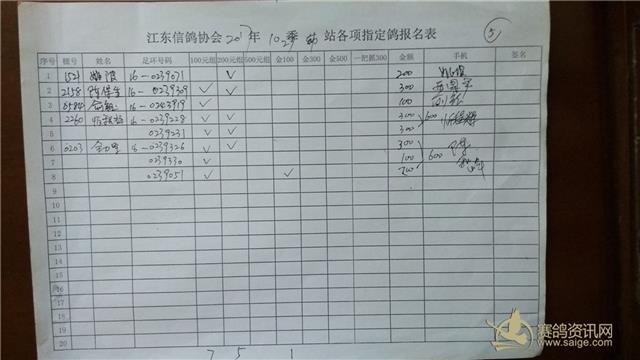 江东信鸽协会2017年10季 站各项指定鸽报名表 5
序号 棚号 姓名 足环号码 100元组 200元组 500元组 金100 金300 金500 一把抓300 金额 手机 签名
1 1521 16-0239071 √ 200
2 2158 16-0239309 √ √ 300
3 0584 16-0203919 √ 100
4 2260 16-0239228 √ √ 300 600
5 0239231 √ √ 300
6 0203 16-0239326 √ √ 300
7 0239330 √ 100 600
8 0239051 √ √ 200
9
10
11
12
13
14
15
16
17
18
19
20
7 5 1
赛鸽资讯网
www.saige.com